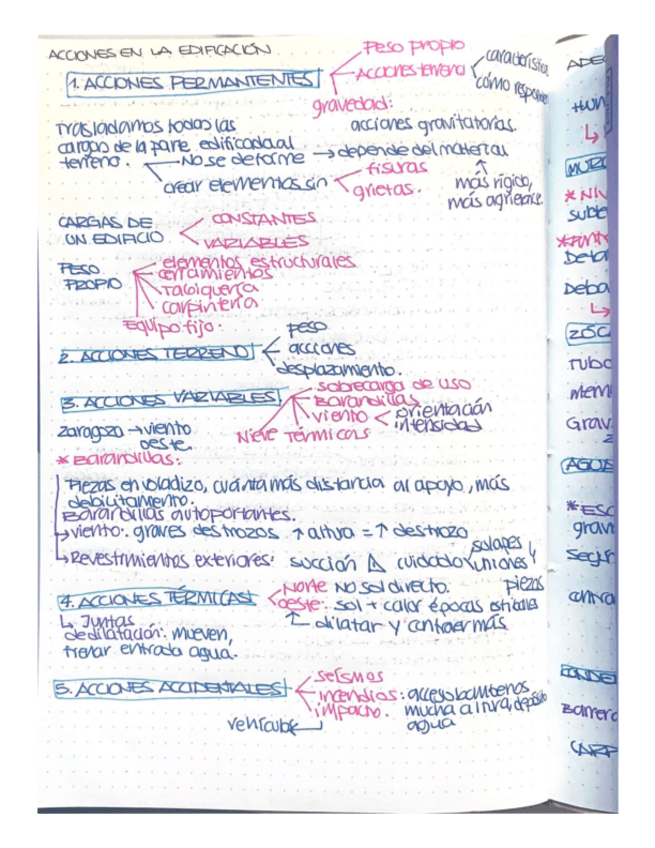 ACCIONES EN LA EDIFICACIÓN
1. ACCIONES PERMANTENTES
Peso propio
Acciones terreno
característica
cómo responde
gravedad:
acciones gravitatorias.
Trasladamos todas las
cargas de la parte edificada al
terreno.
No se deforme → depende del material
crear elementos sin
fisuras
grietas.
más rígido,
más agrietarse.
CARGAS DE
UN EDIFICIO
CONSTANTES
VARIABLES
PESO
PROPIO
elementos estructurales
cerramientos
Tabiquería
carpintería
Equipo fijo.
2. ACCIONES TERRENO
peso
acciones
desplazamiento.
3. ACCIONES VARIABLES
sobrecarga de uso
Barandillas
viento
orientación
intensidad
Nieve Térmicas
Zaragoza → viento
oeste.
* Barandillas:
Piezas en voladizo, cuánta más distancia al apoyo, más
debilitamiento.
Barandillas autoportantes.
→ viento: graves destrozos ↑ altura = ↑ destrozo
→ Revestimientos exteriores: succión ⚠ cuidado
solapes y
uniones
piezas
4. ACCIONES TÉRMICAS
Norte No sol directo.
oeste: sol + calor épocas estivales
dilatar y contraer más
↳ Juntas
de dilatación: mueven,
frenar entrada agua.
5. ACCIONES ACCIDENTALES
seísmos
incendios: acceso bomberos
mucha altura, depósito
agua
impacto.
vehículos
ADEC
HUN
MURO
* NIV
Suble
Deba
ZÓC
Tubo
Mem
Grav
AGUA
* ESC
gran
Segu
Barrera
CARP